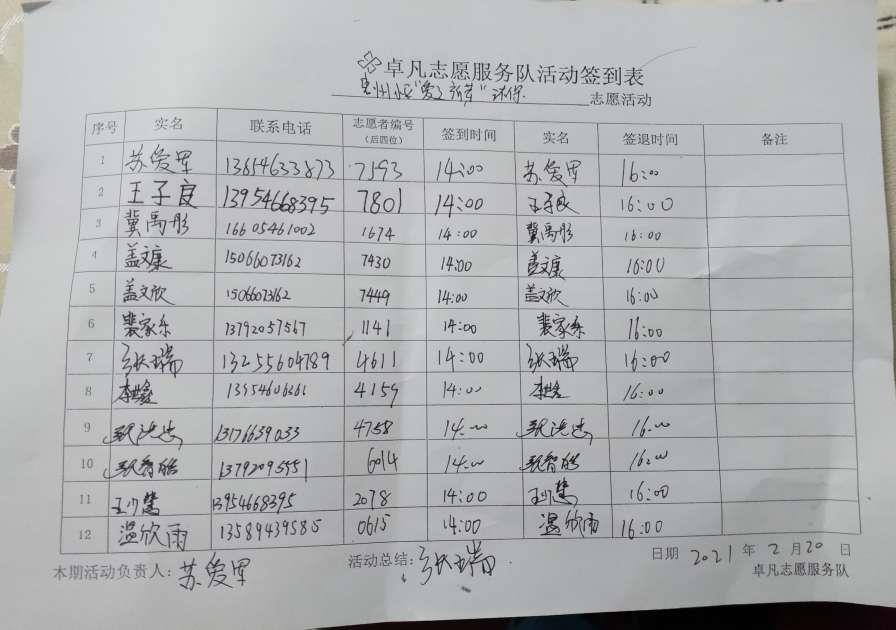 卓凡志愿服务队活动签到表
志愿活动
序号 实名 联系电话 志愿者编号（后四位） 签到时间 实名 签退时间 备注
1 苏爱军 13654633873 7593 14:00 苏爱军 16:00
2 王子良 13954668395 7801 14:00 王子良 16:00
3 冀禹彤 16605461002 1674 14:00 冀禹彤 16:00
4 盖文康 15066073162 7430 14:00 盖文康 16:00
5 盖文欣 15066073162 7449 14:00 盖文欣 16:00
6 裴家乐 13792057567 1141 14:00 裴家乐 16:00
7 张瑞 13255604789 4611 14:00 张瑞 16:00
8 13954606361 4159 14:00 16:00
9 13176639033 4758 14:00 16:00
10 13792095551 6014 14:00 16:00
11 王少慧 13954668395 2078 14:00 王少慧 16:00
12 温欣雨 13589439585 0615 14:00 温欣雨 16:00
本期活动负责人：苏爱军 活动总结：张瑞 日期 2021 年 2 月 20 日
卓凡志愿服务队